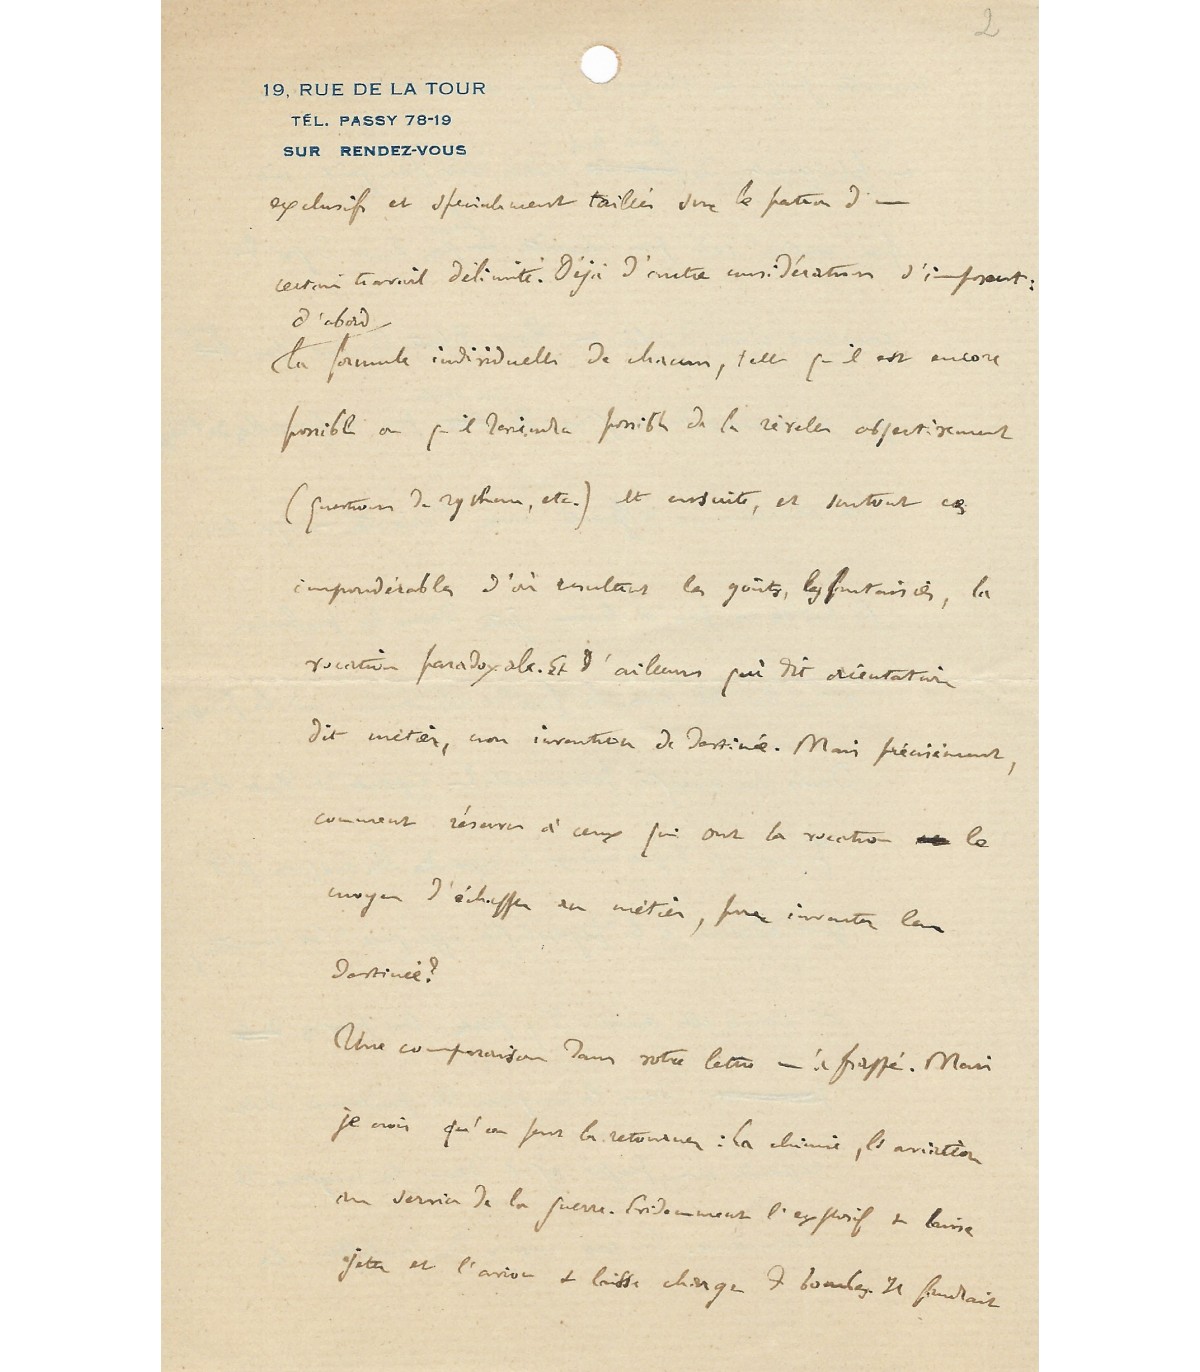 2
19, RUE DE LA TOUR
TÉL. PASSY 78-19
SUR RENDEZ-VOUS
exclusifs et spécialement taillés sur le patron d'un
certain travail délimité. Déjà d'autres considérations s'imposent :
d'abord
la formule individuelle de chacun, telle qu'il est encore
possible ou qu'il deviendra possible de la révéler objectivement
(questions de rythme, etc.) et ensuite, et surtout ces
impondérables d'où résultent les goûts, les fantaisies, la
vocation paradoxale. Et d'ailleurs qui dit orientation
dit métier, non invention de destinée. Mais précisément,
comment réserver à ceux qui ont la vocation le
moyen d'échapper au métier, pour inventer leur
destinée?
Une comparaison dans votre lettre m'a frappé. Mais
je crois qu'on peut la retourner : la chimie, l'aviation
au service de la guerre. Evidemment l'explosif se laisse
jeter et l'avion se laisse charger de bombes. Il faudrait